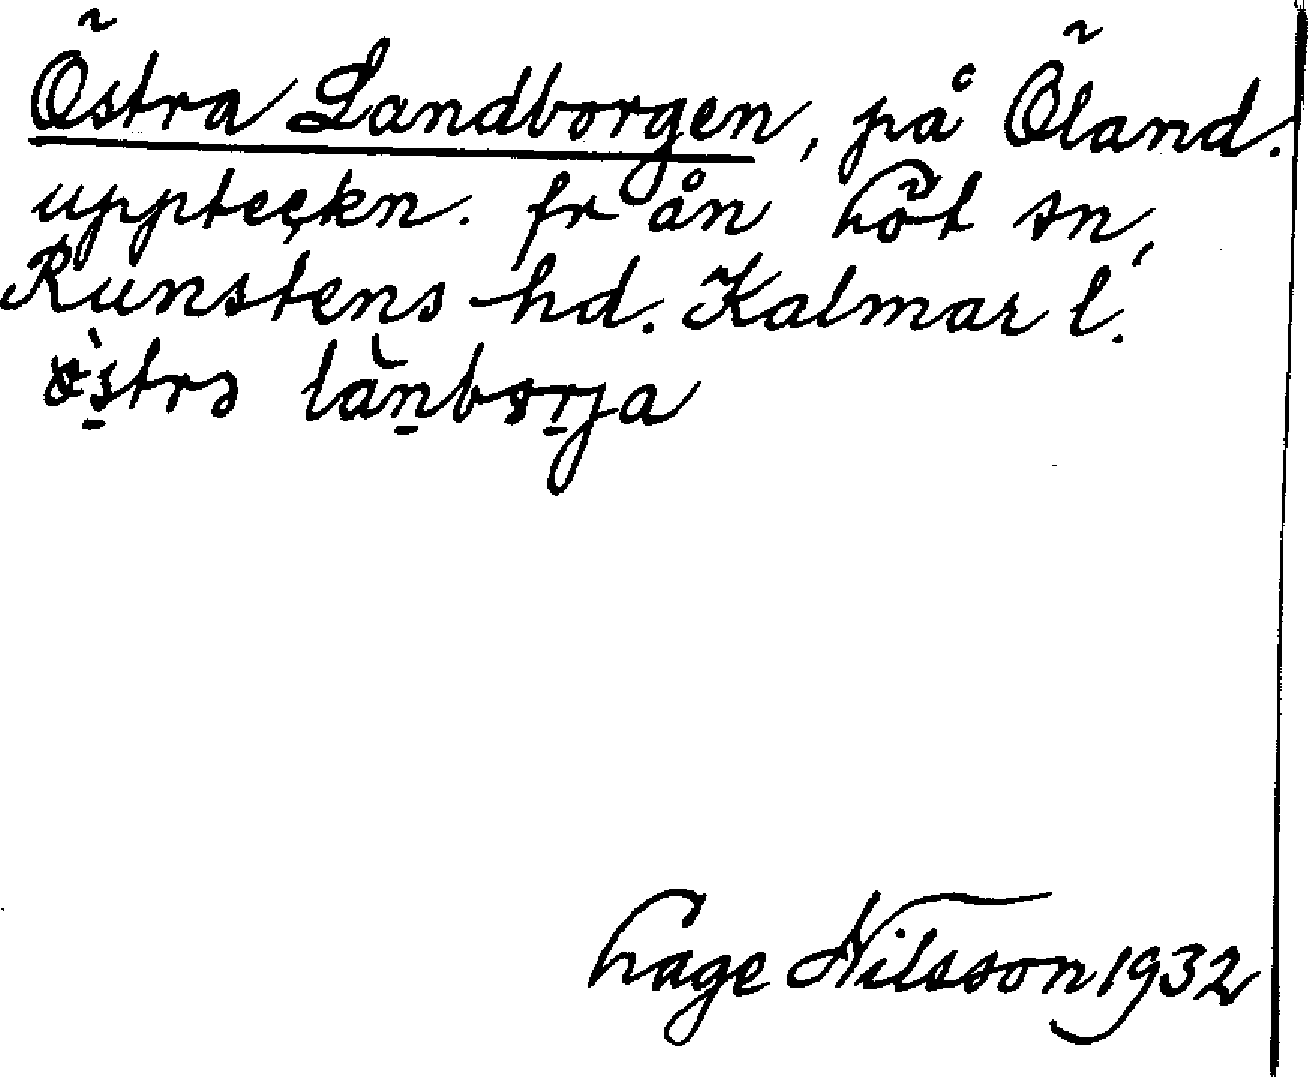 Östra Landborgen, på Öland.
uppteckn. från Löt sn,
Runstens hd. Kalmar l.
östrə lànborja
Lage Nilsson 1932